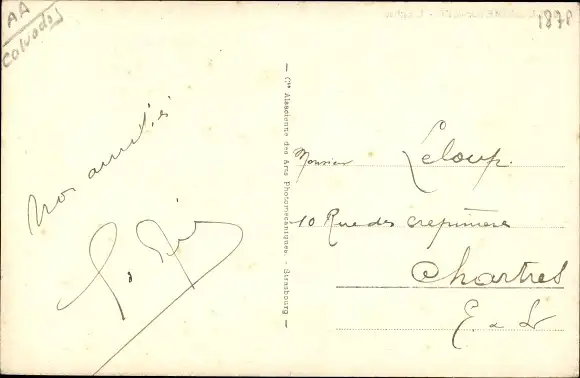 AA
Calvados
1878
Nos amitiés
— Cie Alsacienne des Arts Photomécaniques. - Strasbourg —
Monsieur Leloup.
10 Rue des crepinieres
Chartres
E. & L